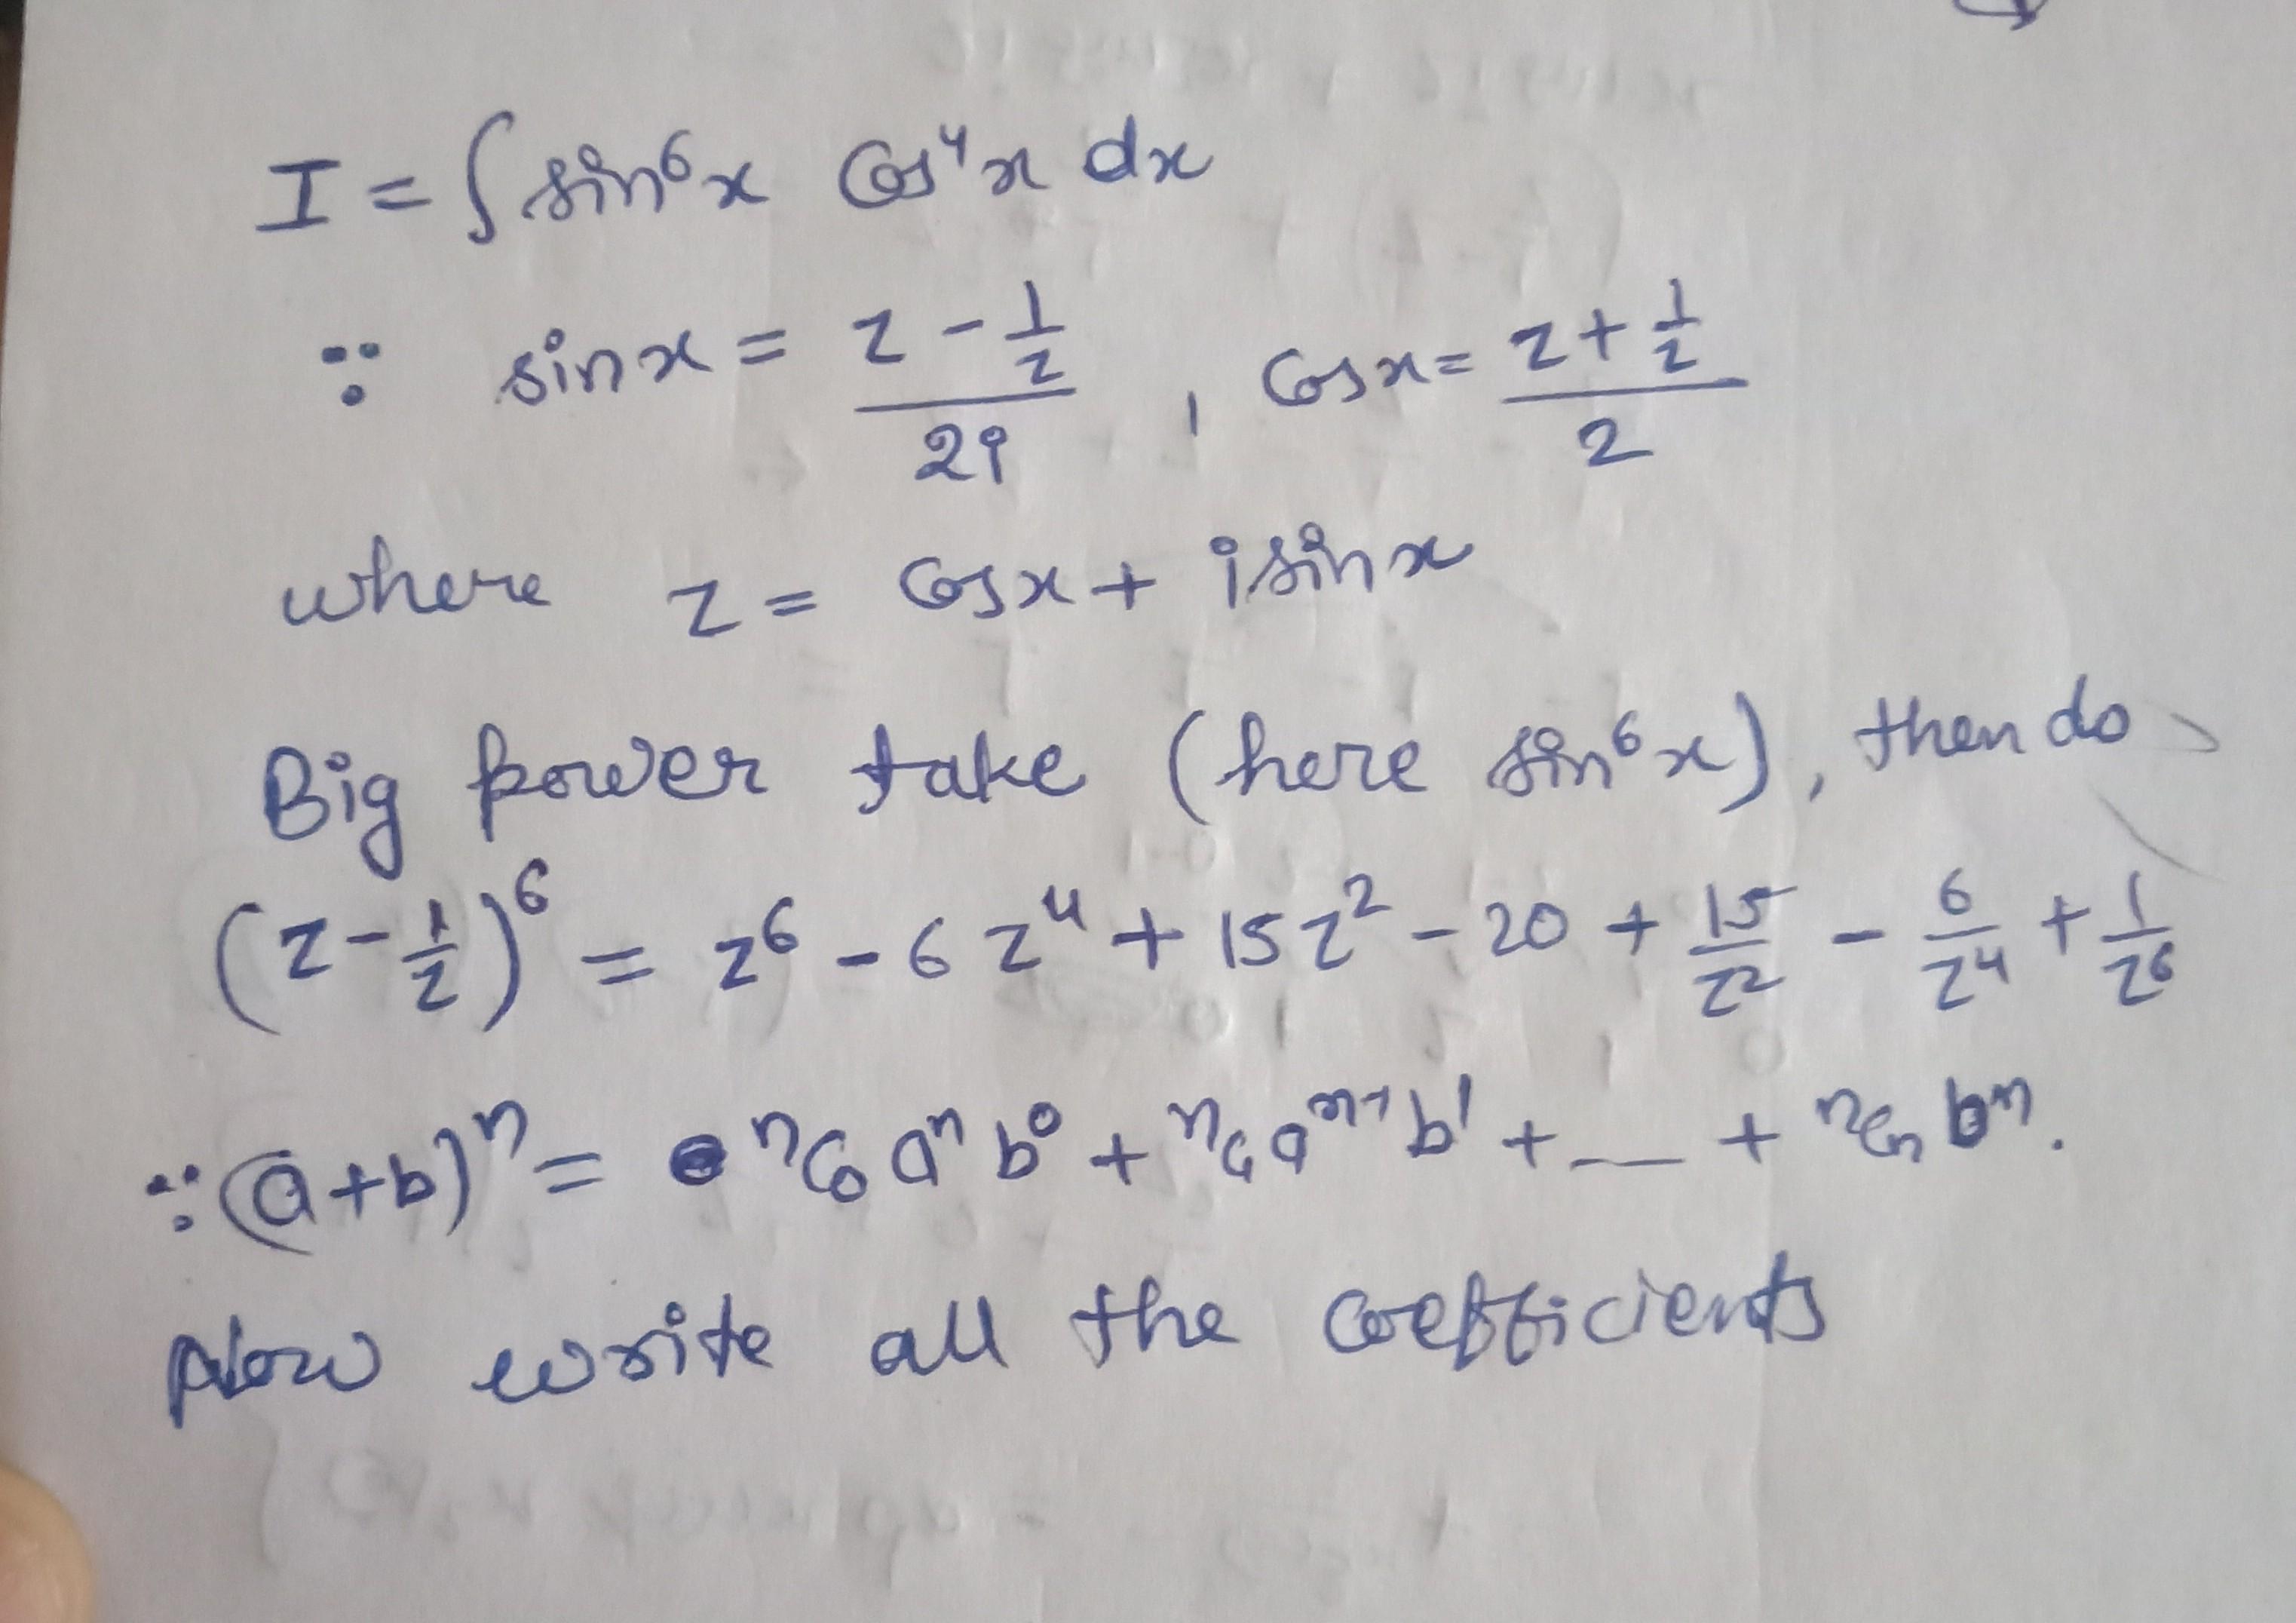 I = ∫ sin⁶x cos⁴x dx
∵ sinx = (z - 1/z)/2i , cosx = (z + 1/z)/2
where z = cosx + isinx
Big power take (here sin⁶x), then do
(z - 1/z)⁶ = z⁶ - 6z⁴ + 15z² - 20 + 15/z² - 6/z⁴ + 1/z⁶
∵ (a+b)ⁿ = ⁿC₀ aⁿ b⁰ + ⁿC₁ aⁿ⁻¹ b¹ + __ + ⁿCₙ bⁿ.
Now write all the coefficients